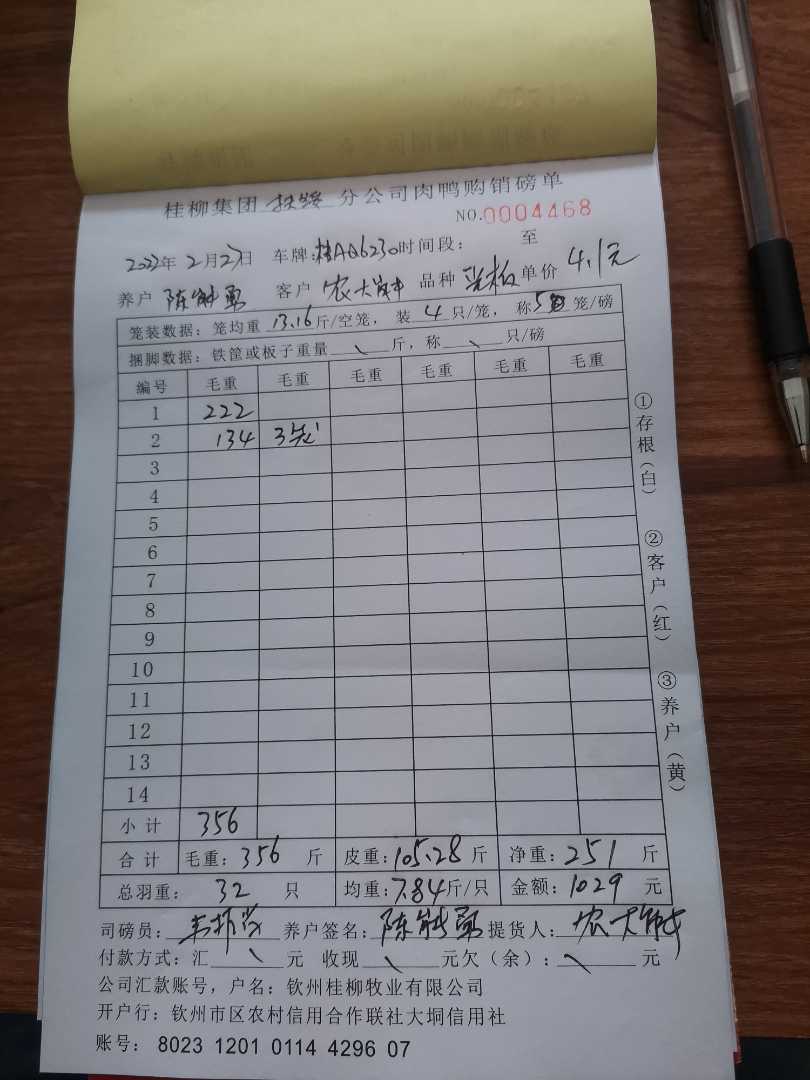 桂柳集团 扶绥 分公司肉鸭购销磅单
NO.0004468
2022年2月27日 车牌:桂AQ6230时间段: 至
养户 陈能勇 客户 农大 品种 单价 4.1元
笼装数据: 笼均重 13.16 斤/空笼, 装 4 只/笼, 称 5 笼/磅
捆脚数据: 铁筐或板子重量 \ 斤, 称 \ 只/磅
编号 毛重 毛重 毛重 毛重 毛重 毛重
1 222
2 134 3
3
4
5
6
7
8
9
10
11
12
13
14
小计 356
合计 毛重: 356 斤 皮重: 105.28 斤 净重: 251 斤
总羽重: 32 只 均重: 7.84 斤/只 金额: 1029 元
司磅员: 养户签名: 陈能勇 提货人: 农大
付款方式: 汇 \ 元 收现 \ 元欠(余): \ 元
公司汇款账号, 户名: 钦州桂柳牧业有限公司
开户行: 钦州市区农村信用合作联社大垌信用社
账号: 8023 1201 0114 4296 07
①存根(白)
②客户(红)
③养户(黄)